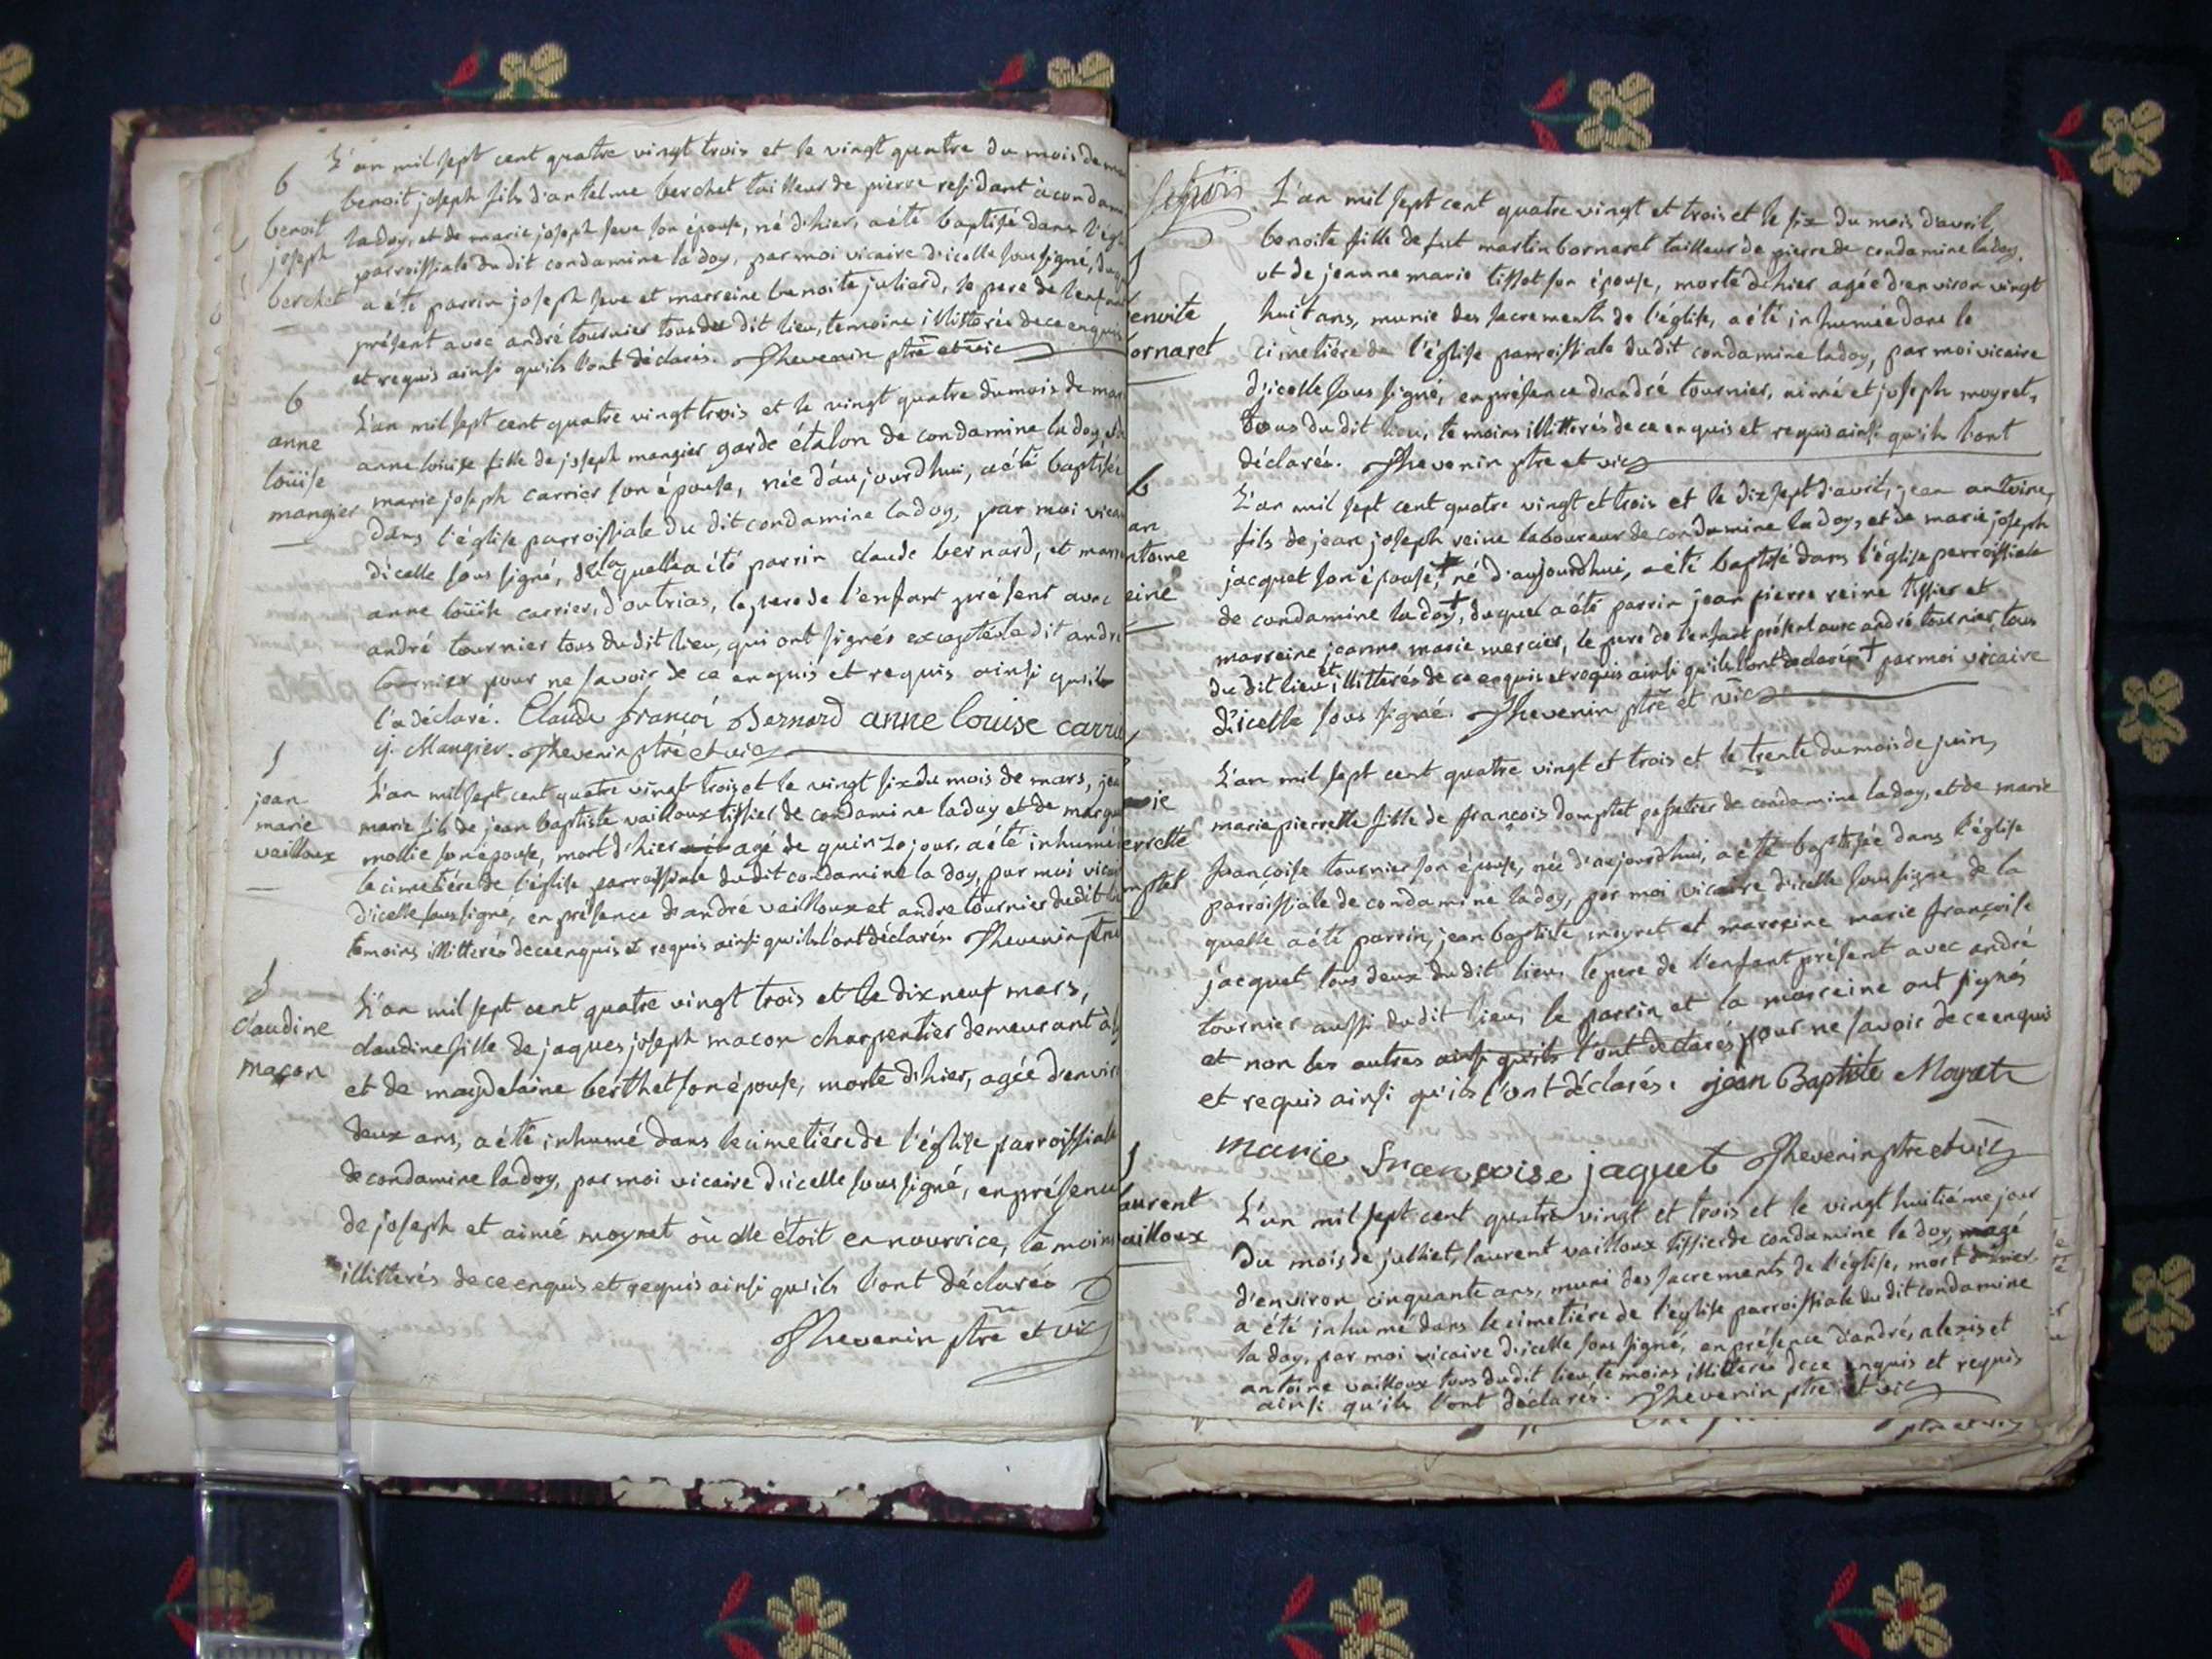 L'an mil sept cent quatre vingt trois et le vingt quatre du mois de
b
benoit joseph fils d'antelme berchet tailleur de pierre residant à
benoit
joseph
berchet
ladoy, et de marie joseph seve son épouse, né d'hier, a été baptisé dans
parroissiale du dit condamine ladoy, par moi vicaire d'icelle sous signé,
a été parrin joseph seve et marreine benoite juliard, le pere de
présent avec andré tournier tous du dit lieu, temoins illitterés de ce enquis
et requis ainsi qu'ils l'ont déclarés. Thevenin ptre et vic
b
anne
loüise
mangier
L'an mil sept cent quatre vingt trois et le vingt quatre du mois de
anne loüise fille de joseph mangier garde étalon de condamine ladoy,
marie joseph carrier son épouse, née d'aujourdhui, a été baptisée
dans l'église parroissiale du dit condamine ladoy, par moi
d'icelle sous signé, de la quelle a été parrin claude bernard, et
anne loüise carrier, d'outrias, le pere de l'enfant présent avec
andré tournier tous du dit lieu, qui ont signés excepté le dit andré
tournier pour ne savoir de ce enquis et requis ainsi qu'il
l'a déclaré. Claude françoi Bernard anne louise
j. Mangier. Thevenin ptre et vic
jean
marie
vailloux
L'an mil sept cent quatre vingt trois et le vingt six du mois de mars,
marie fils de jean baptiste vailloux tissier de condamine ladoy et de
mollie son épouse, mort d'hier agé de quinze jour, a été inhumé
le cimetiére de l'église parroissiale du dit condamine ladoy, par moi
d'icelle sous signé, en présence d'andré vailloux et andre tournier du dit
temoins illitterés de ce enquis et requis ainsi qu'ils l'ont déclarés. Thevenin
claudine
macon
L'an mil sept cent quatre vingt trois et le dix neuf mars,
claudine fille de jaques joseph macon charpentier demeurant à
et de magdelaine berthet son épouse, morte d'hier, agée
deux ans, a été inhumé dans le cimetiére de l'église parroissiale
de condamine ladoy, par moi vicaire d'icelle sous signé, en présence
de joseph et aimé moyret où elle étoit en nourrice, temoins
illitterés de ce enquis et requis ainsi qu'ils l'ont déclarés
Thevenin ptre et vic
L'an mil sept cent quatre vingt et trois et le six du mois d'avril,
benoite fille de fut martin bornaret tailleur de pierre de condamine ladoy,
et de jeanne marie tissot son épouse, morte d'hier agée d'environ vingt
enoite
ornaret
huit ans, munie des sacrements de l'église, a été inhumée dans le
cimetiére de l'église parroissiale du dit condamine ladoy, par moi vicaire
d'icelle sous signé, en présence d'andré tournier, aimé et joseph moyret,
tous du dit lieu, temoins illitterés de ce enquis et requis ainsi qu'ils l'ont
déclarés. Thevenin ptre et vic
b
an
ntoine
eine
L'an mil sept cent quatre vingt et trois et le dix sept d'avril, jean antoine,
fils de jean joseph reine laboureur de condamine ladoy, et de marie joseph
jacquet son épouse,+ né d'aujourdhui, a été baptisé dans l'église parroissiale
de condamine ladoy+, du quel a été parrin jean pierre reine tissier et
marreine jeanne marie mercier, le pere de l'enfant présent avec andré tournier, tous
du dit lieu et illitterés de ce enquis et requis ainsi qu'ils l'ont déclarés + par moi vicaire
d'icelle sous signé. Thevenin ptre et vic
L'an mil sept cent quatre vingt et trois et le trente du mois de juin,
marie pierrette fille de françois domptet de condamine ladoy, et de marie
errette
mptet
françoise tournier son épouse, née d'aujourdhui, a été baptisée dans l'église
parroissiale de condamine ladoy, par moi vicaire d'icelle sous signé de la
quelle a été parrin, jean baptiste moyret et marreine marie françoise
jacquet tous deux du dit lieu, le pere de l'enfant présent avec andré
tournier aussi du dit lieu, le parrin et la marreine ont signés
et non les autres ainsi qu'ils l'ont declarés pour ne savoir de ce enquis
et requis ainsi qu'ils l'ont déclarés. jean Baptiste Moyret
marie françoise jaquet Thevenin ptre et vic
aurent
ailloux
L'an mil sept cent quatre vingt et trois et le vingt huitiéme jour
du mois de julliet, laurent vailloux tissier de condamine la doy, agé
d'environ cinquante ans, muni des sacrements de l'église, mort d'hier
a été inhumé dans le cimetiére de l'église parroissiale du dit condamine
la doy, par moi vicaire d'icelle sous signé, en présence d'andré, alexis et
antoine vailloux tous du dit lieu, temoins illitterés de ce enquis et requis
ainsi qu'ils l'ont déclarés. Thevenin ptre et vic
ptre et vic